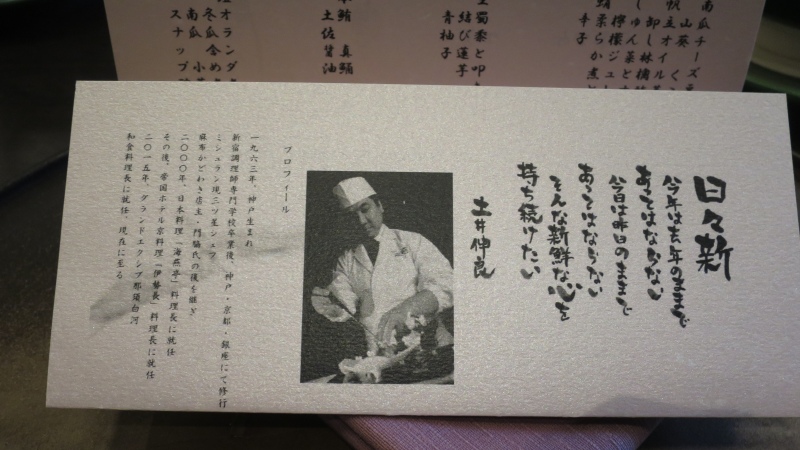 南瓜チーズ
山葵
帆立オイル
卸し林檎
じゅん菜と
檸檬ジュ
鮹柔らか煮
辛子
蜀黍と叩
結び蓮芋
青柚子
鮪 真鯒
土佐醤油
オランダ
冬瓜含め
南瓜 小
スナップ
日々新
今年は去年のままで
あってはならない
今日は昨日のままで
あってはならない
そんな新鮮な心を
持ち続けたい
土井伸良
プロフィール
一九六三年、神戸生まれ
新宿調理師専門学校卒業後、神戸・京都・銀座にて修行
ミシュラン現三ツ星シェフ
麻布かどわき店主・門脇氏の後を継ぎ
二〇〇〇年、日本料理「海燕亭」料理長に就任
その後、帝国ホテル京料理「伊勢長」料理長に就任
二〇一五年、グランドエクシブ那須白河
和食料理長に就任、現在に至る